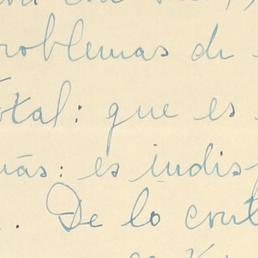 problemas de
total: que es
más: es indis
. De lo cont